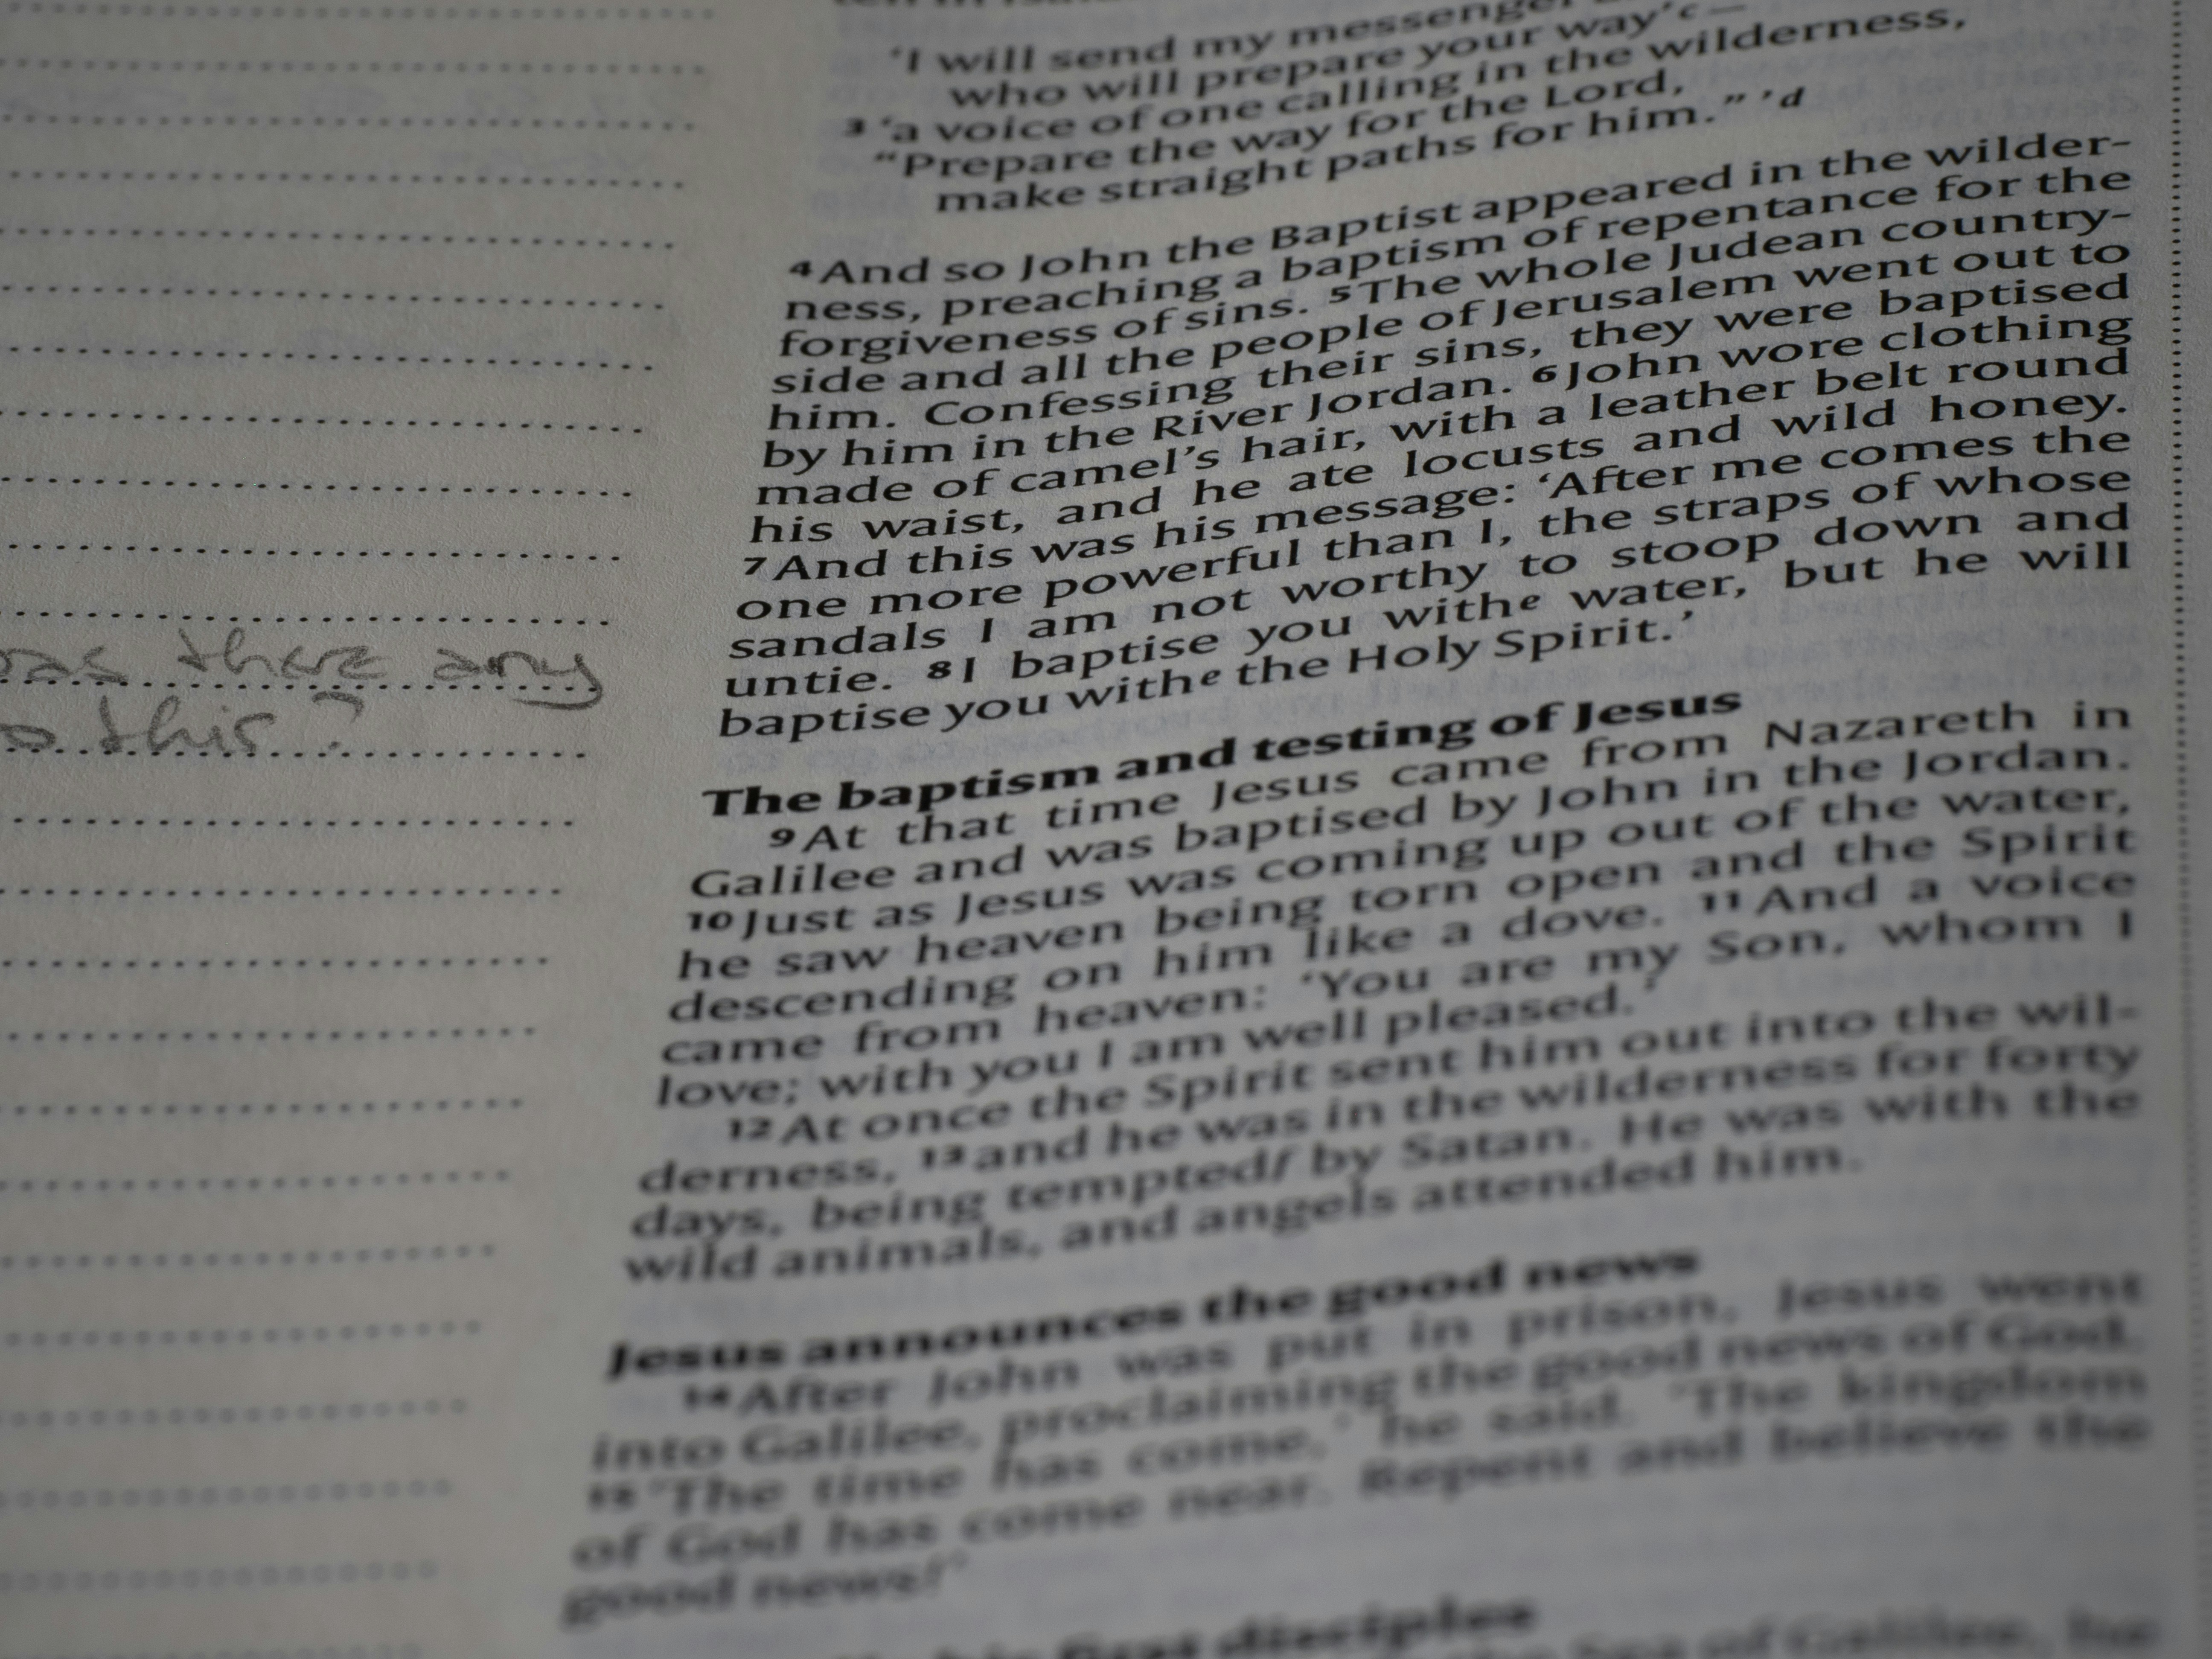 'I will send my messenger
who will prepare your way'c—
3 'a voice of one calling in the wilderness,
"Prepare the way for the Lord,
make straight paths for him." 'd
4 And so John the Baptist appeared in the wilder-
ness, preaching a baptism of repentance for the
forgiveness of sins. 5 The whole Judean country-
side and all the people of Jerusalem went out to
him. Confessing their sins, they were baptised
by him in the River Jordan. 6 John wore clothing
made of camel's hair, with a leather belt round
his waist, and he ate locusts and wild honey.
7 And this was his message: 'After me comes the
one more powerful than I, the straps of whose
sandals I am not worthy to stoop down and
untie. 8 I baptise you withe water, but he will
baptise you withe the Holy Spirit.'
there any
this?
The baptism and testing of Jesus
9 At that time Jesus came from Nazareth in
Galilee and was baptised by John in the Jordan.
10 Just as Jesus was coming up out of the water,
he saw heaven being torn open and the Spirit
descending on him like a dove. 11 And a voice
came from heaven: 'You are my Son, whom I
love; with you I am well pleased.'
12 At once the Spirit sent him out into the wil-
derness, 13 and he was in the wilderness for forty
days, being temptedf by Satan. He was with the
wild animals, and angels attended him.
Jesus announces the good news
14 After John was put in prison, Jesus went
into Galilee, proclaiming the good news of God.
15 'The time has come,' he said. 'The kingdom
of God has come near. Repent and believe the
good news!'
his first disciples
Sea of Galilee, he